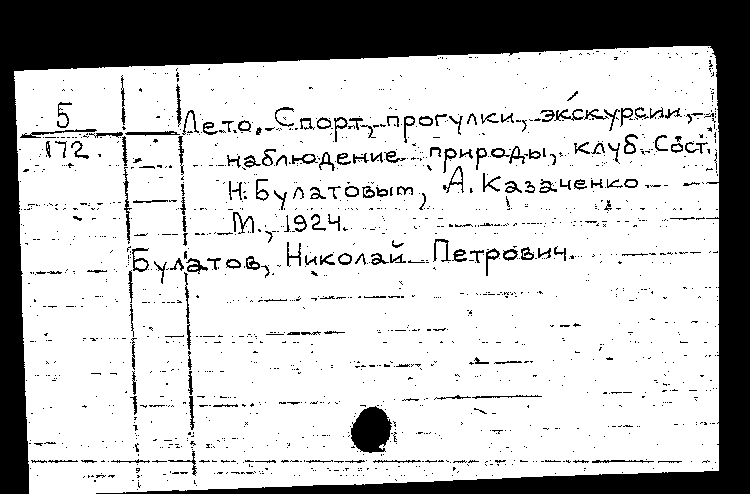 5
172.
Лето. Спорт, прогулки, экскурсии,
наблюдение природы, клуб. Сост.
Н. Булатовым, А. Казаченко
М., 1924.
Булатов, Николай Петрович.